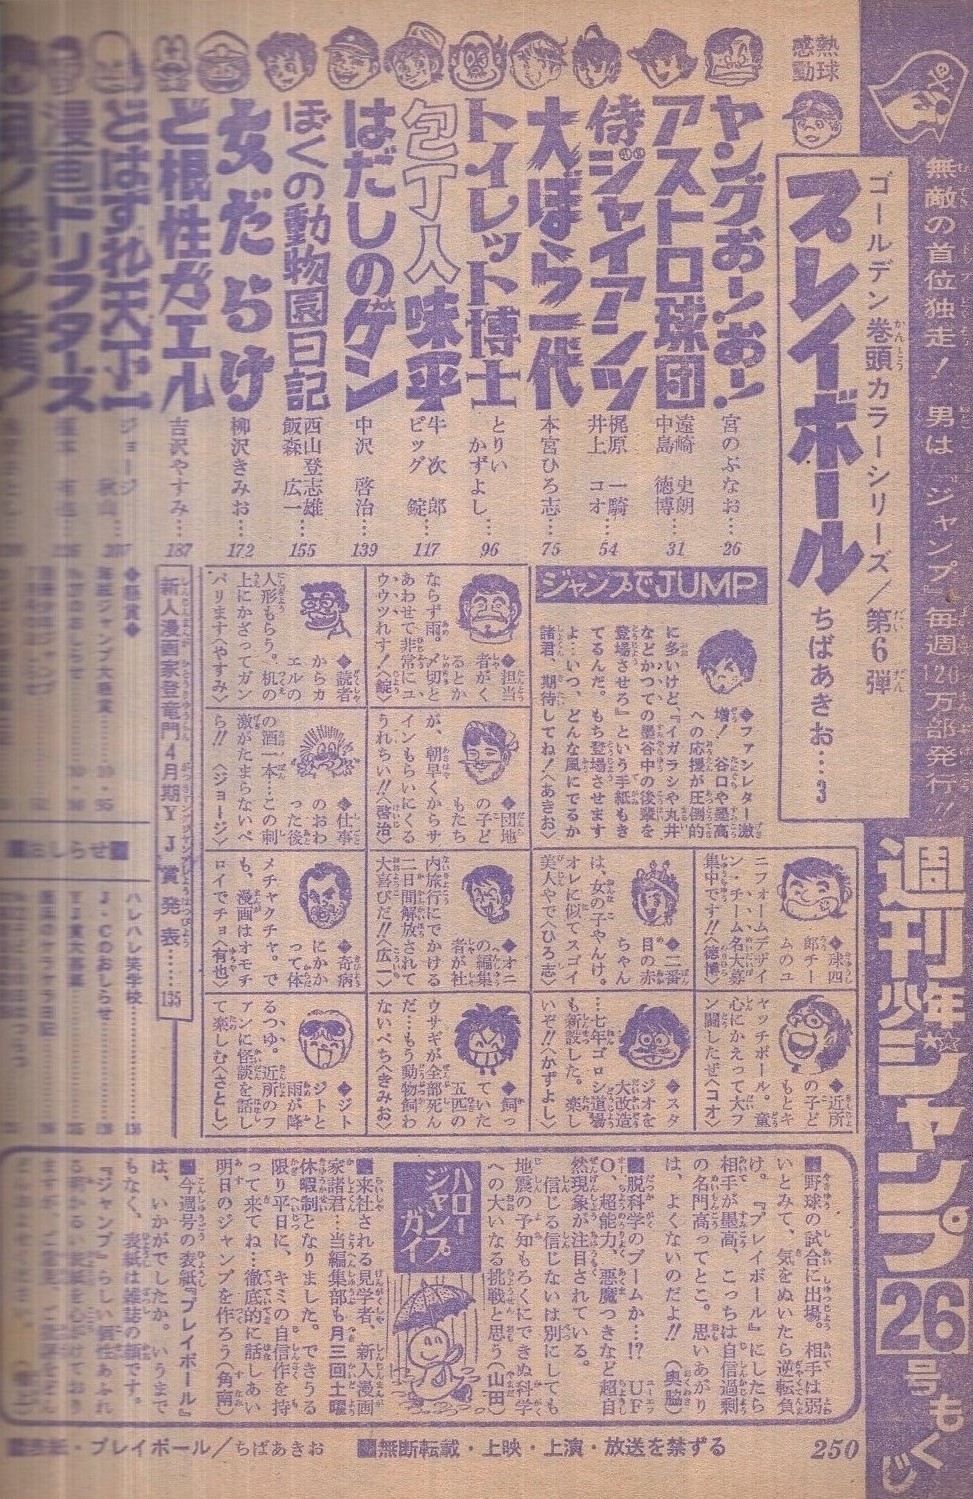 無敵の首位独走！男は『ジャンプ』毎週120万部発行!!
週刊少年ジャンプ26号もくじ
熱球感動
ゴールデン巻頭カラーシリーズ／第6弾
プレイボール
ちばあきお…3
ヤングおー!おー!
宮のぶなお…26
アストロ球団
遠崎史朗
中島徳博…31
侍ジャイアンツ
梶原一騎
井上コオ…54
大ぼら一代
本宮ひろ志…75
トイレット博士
とりいかずよし…96
包丁人味平
牛次郎
ビッグ錠…117
はだしのゲン
中沢啓治…139
ぼくの動物園日記
西山登志雄
飯森広一…155
女だらけ
柳沢きみお…172
ど根性ガエル
吉沢やすみ…187
とはずれ天下一
ジョージ
漫画ドリフターズ
ジャンプでJUMP
◆ファンレター激
増！谷口や墨高
への応援が圧倒的
に多いけど、『イガラシや丸井
などかつての墨谷中の後輩を
登場させろ』という手紙もき
てるんだ。もち登場させます
よ…いつ、どんな風にでるか
諸君、期待してね！〈あきお〉
◆球四
郎チー
ムのユ
ニフォームデザイ
ン・チーム名大募
集中です!!〈徳博〉
◆近所
の子ど
もとキ
ャッチボール。童
心にかえって大フ
ン闘したぜ〈コオ〉
◆二番
目の赤
ちゃん
は、女の子やんけ。
オレに似てスゴイ
美人やで〈ひろ志〉
◆スタ
ジオを
大改造
…七年ゴロシ道場
も新設した。楽し
いぞ!!〈かずよし〉
◆担当
者がく
るとか
ならず雨。〆切と
あわせて非常にユ
ウウツれす！〈錠〉
◆団地
の子ど
もたち
が、朝早くからサ
インもらいにくる
うれちい!!〈啓治〉
◆オニ
の編集
者が社
内旅行にでかける
二日間解放されて
大喜びだ!!〈広一〉
◆飼っ
ていた
五匹の
ウサギが全部死ん
だ…もう動物飼わ
ないべち〈きみお〉
◆読者
からカ
エルの
人形もらう。机の
上にかざってガン
バリます〈やすみ〉
◆仕事
のおわ
った後
の酒一本…この刺
激がたまらないべ
ら!!〈ジョージ〉
◆奇病
にかか
って体
メチャクチャ。で
も、漫画はオモチ
ロイでチョ〈有也〉
◆ジト
ジトと
雨が降
るつゆ。近所のフ
ァンに怪談を話し
て楽しむ〈さとし〉
新人漫画家登竜門4月期YJ賞発表……135
◆懸賞◆
■おしらせ■
ハレハレ笑学校……135
J・Cのおしらせ
■野球の試合に出場。相手は弱
いとみて、気をぬいたら逆転負
け。『プレイボール』にしたら
相手が墨高、こっちは自信過剰
の名門高ってとこ。思いあがり
は、よくないのだよ!!（奥脇）
■脱科学のブームか…!?UF
O、超能力、悪魔つきなど超自
然現象が注目されている。
信じる信じないは別にしても
地震の予知もろくにできぬ科学
への大いなる挑戦と思う（山田）
ハロージャンプガイ
■来社される見学者、新人漫画
家諸君…当編集部も月三回土曜
休暇制となりました。できうる
限り平日に、キミの自信作を持
って来てね…徹底的に話しあい
明日のジャンプを作ろう（角南）
■今週号の表紙『プレイボール』
は、いかがでしたか。いうまで
もなく、表紙は雑誌の顔です。
『ジャンプ』らしい個性あふれ
表紙・プレイボール／ちばあきお
■無断転載・上映・上演・放送を禁ずる
250